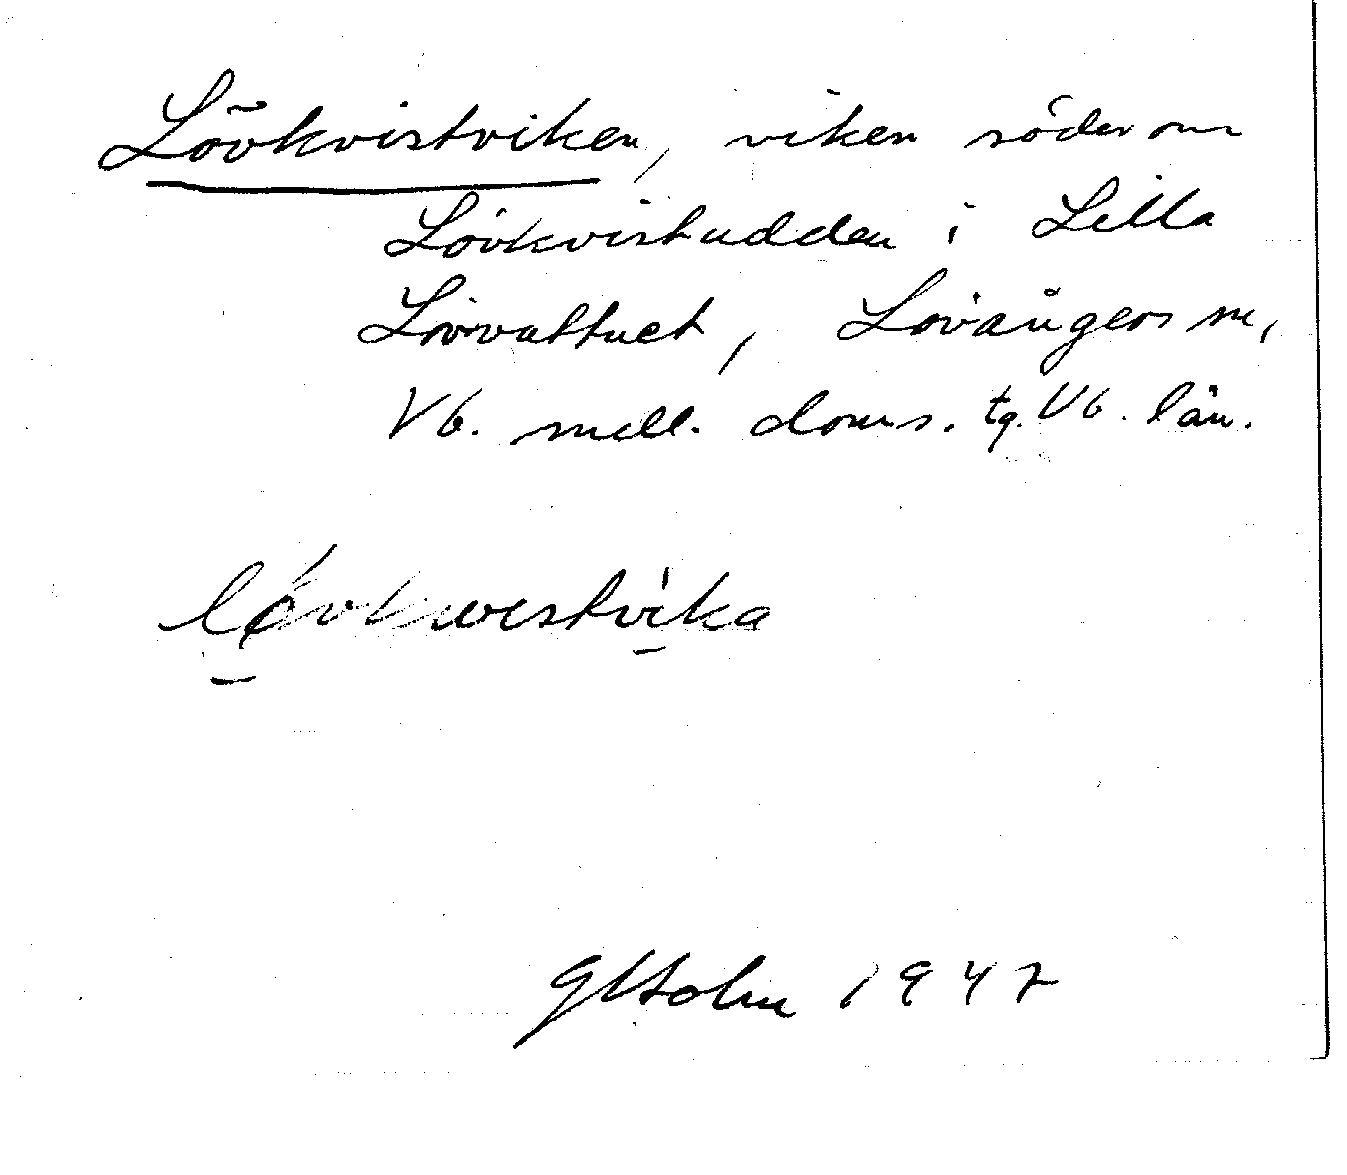 Lövkvistviken, viken söder om
Lövkvistudden i Lilla
Lövvattnet, Lövångers sn,
Vb. mell. doms. tg. Vb. län.
lövkwestvika
GHolm 1947